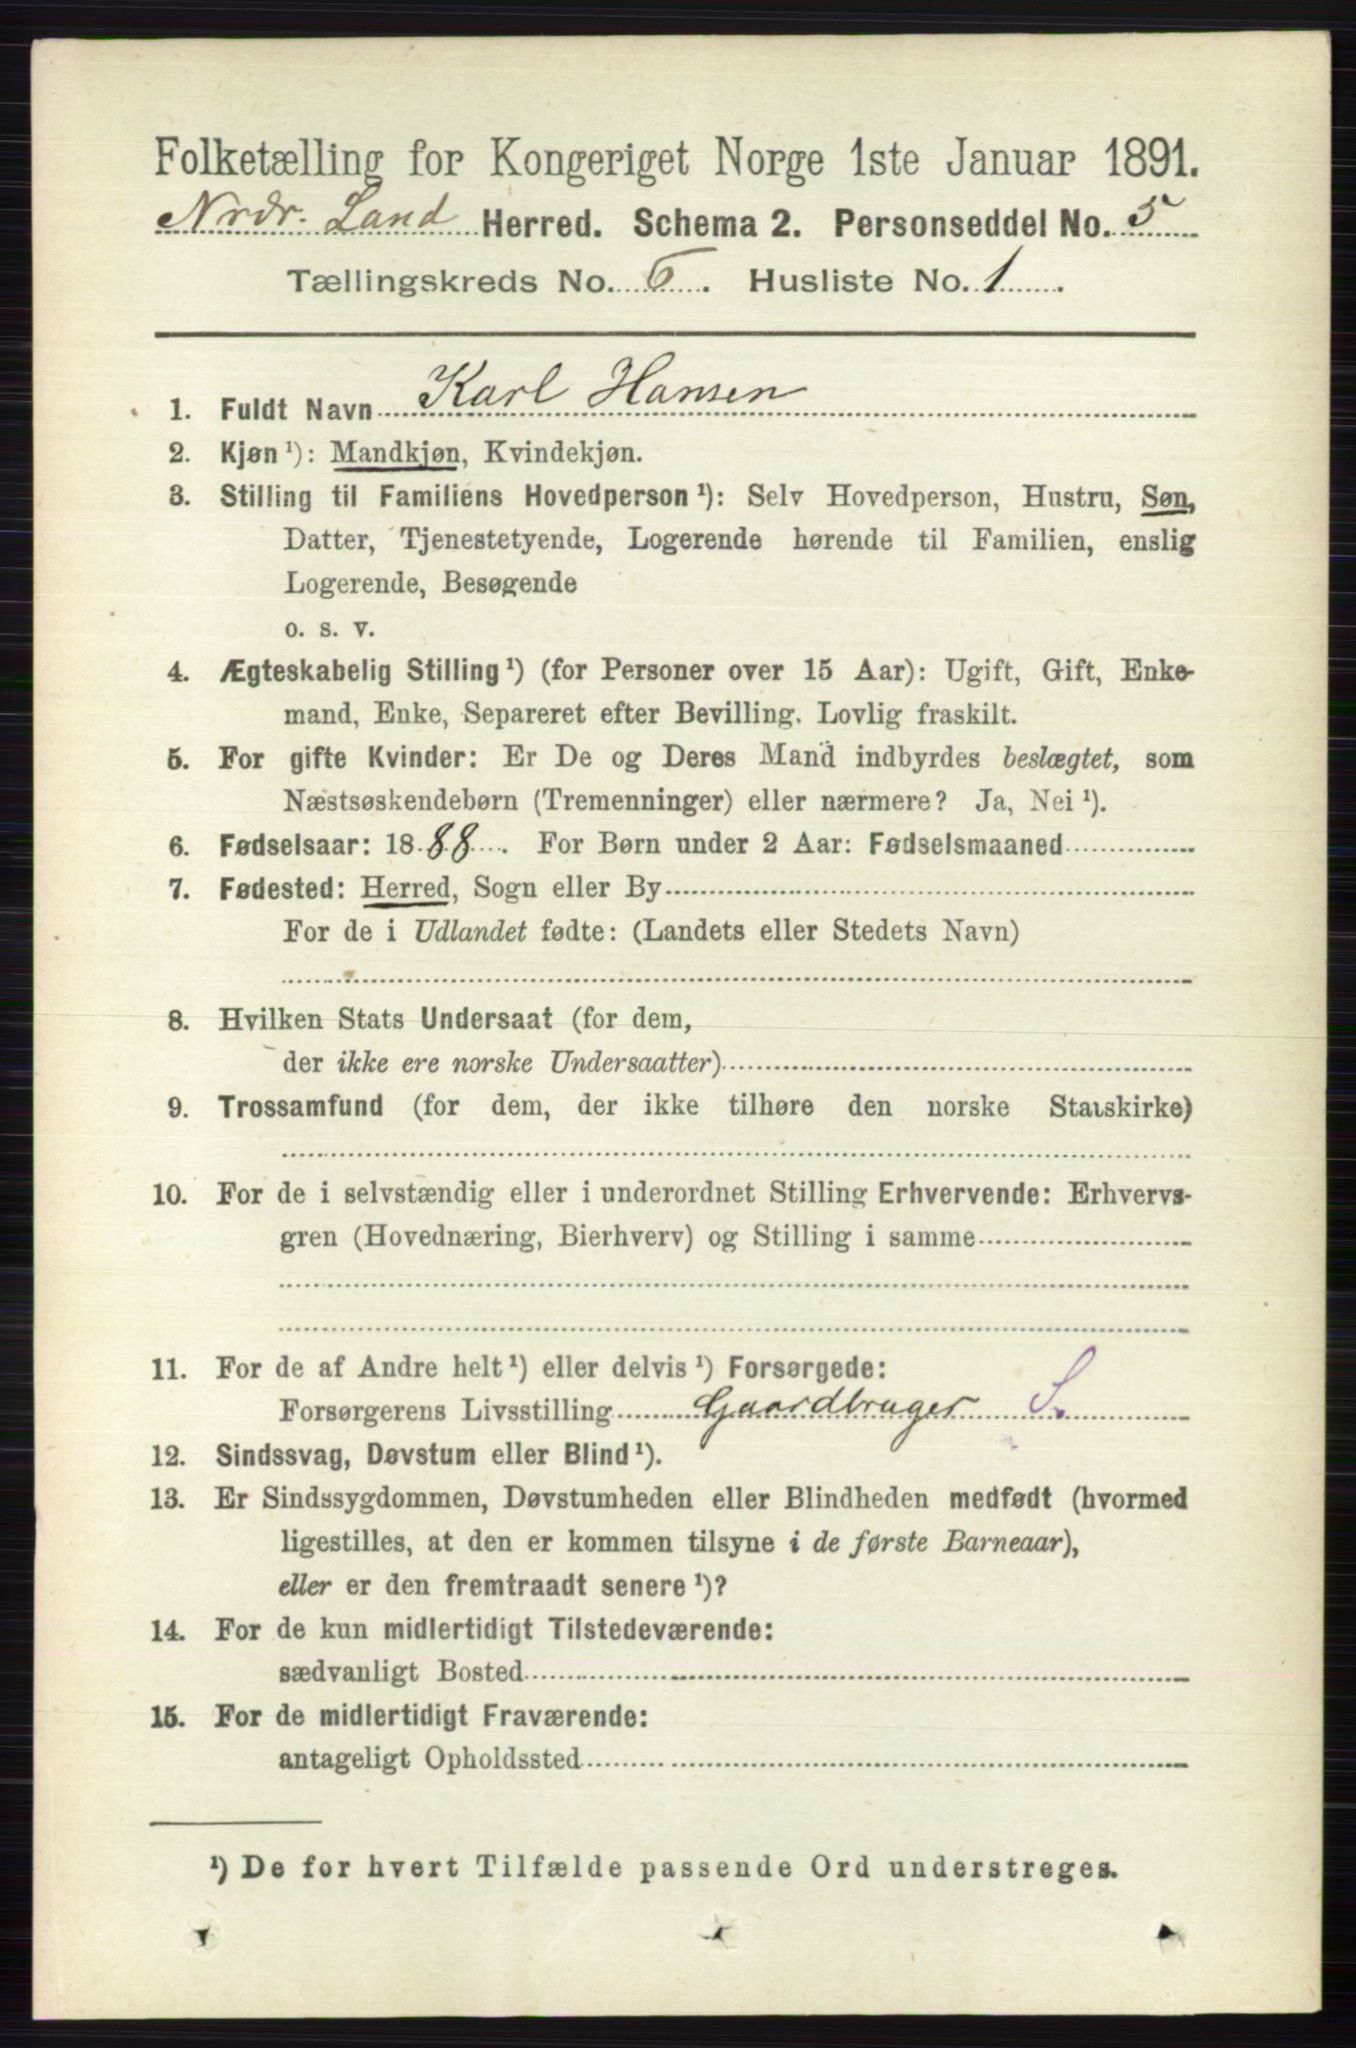 Folketælling for Kongeriget Norge 1ste Januar 1891.
Nrdr. Land Herred. Schema 2. Personseddel No. 5
Tællingskreds No. 6. Husliste No. 1.
1. Fuldt Navn Karl Hansen
2. Kjøn¹): Mandkjøn, Kvindekjøn.
3. Stilling til Familiens Hovedperson¹): Selv Hovedperson, Hustru, Søn,
Datter, Tjenestetyende, Logerende hørende til Familien, enslig
Logerende, Besøgende
o. s. v.
4. Ægteskabelig Stilling¹) (for Personer over 15 Aar): Ugift, Gift, Enke-
mand, Enke, Separeret efter Bevilling. Lovlig fraskilt.
5. For gifte Kvinder: Er De og Deres Mand indbyrdes beslægtet, som
Næstsøskendebørn (Tremenninger) eller nærmere? Ja, Nei¹).
6. Fødselsaar: 1888. For Børn under 2 Aar: Fødselsmaaned
7. Fødested: Herred, Sogn eller By
For de i Udlandet fødte: (Landets eller Stedets Navn)
8. Hvilken Stats Undersaat (for dem,
der ikke ere norske Undersaatter)
9. Trossamfund (for dem, der ikke tilhøre den norske Statskirke)
10. For de i selvstændig eller i underordnet Stilling Erhvervende: Erhvervs-
gren (Hovednæring, Bierhverv) og Stilling i samme
11. For de af Andre helt¹) eller delvis¹) Forsørgede:
Forsørgerens Livsstilling Gaardbruger S.
12. Sindssvag, Døvstum eller Blind¹).
13. Er Sindssygdommen, Døvstumheden eller Blindheden medfødt (hvormed
ligestilles, at den er kommen tilsyne i de første Barneaar),
eller er den fremtraadt senere¹)?
14. For de kun midlertidigt Tilstedeværende:
sædvanligt Bosted
15. For de midlertidigt Fraværende:
antageligt Opholdssted
¹) De for hvert Tilfælde passende Ord understreges.